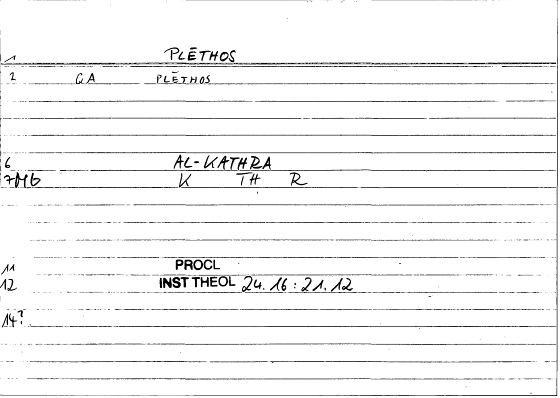 1 PLĒTHOS
2 GA PLĒTHOS
6 AL-KATHRA
7Mb K TH R
11 PROCL
12 INST THEOL 24.16:21.12
14?